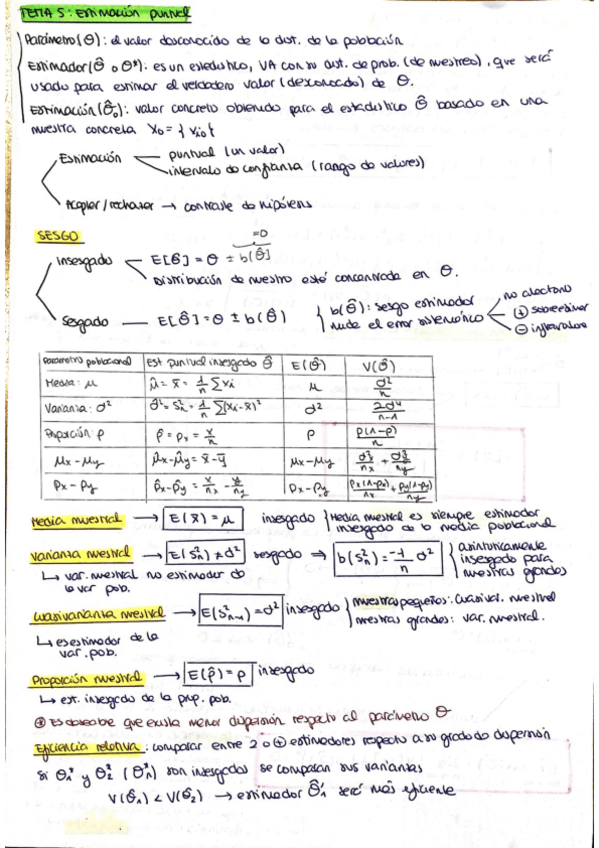 TEMA 5: Estimación puntual
Parámetro (θ): el valor desconocido de la dist. de la población
Estimador (θ̂ o θ*): es un estadístico, VA con su dist. de prob. (de muestreo), que será
usado para estimar el verdadero valor (desconocido) de θ.
Estimación (θ̂₀): valor concreto obtenido para el estadístico θ̂ basado en una
muestra concreta X₀ = {xᵢ₀}
Estimación — puntual (un valor)
— intervalo de confianza (rango de valores)
Aceptar/rechazar → contraste de hipótesis
SESGO
=0
Insesgado — E[θ̂] = θ ± b(θ̂)
— Distribución de muestro esté concentrada en θ.
Sesgado — E[θ̂] = θ ± b(θ̂) { b(θ̂): sesgo estimador
mide el error sistemático — no aleatorio
— ⊕ sobreestimar
— ⊖ infravalora
Parámetro poblacional | Est puntual insesgado θ̂ | E(θ̂) | V(θ̂)
Media: μ | μ̂ = x̄ = 1/n ∑xᵢ | μ | σ²/n
Varianza: σ² | σ̂² = S²ₙ = 1/n ∑(xᵢ-x̄)² | σ² | 2σ⁴/n-1
Proporción: p | p̂ = pₓ = x/n | p | p(1-p)/n
μx - μy | μ̂x - μ̂y = x̄ - ȳ | μx - μy | σ²x/nx + σ²y/ny
px - py | p̂x - p̂y = x/nx - y/ny | px - py | px(1-px)/nx + py(1-py)/ny
Media muestral → E(x̄) = μ insesgado { Media muestral es siempre estimador
insesgado de la media poblacional
Varianza muestral → E(S²ₙ) ≠ σ² sesgado ⇒ b(S²ₙ) = -1/n σ² { asintóticamente
insesgado para
muestras grandes
↳ var. muestral no estimador de
la var pob.
Cuasivarianza muestral → E(S²ₙ₋₁) = σ² insesgado { muestras pequeñas: cuasivar. muestral
muestras grandes: var. muestral.
↳ es estimador de la
var. pob.
Proporción muestral → E(p̂) = p insesgado
↳ est. insesgado de la prop. pob.
⊛ Es deseable que exista menor dispersión respecto al parámetro θ
Eficiencia relativa: comparar entre 2 o ⊕ estimadores respecto a su grado de dispersión
si θ₁* y θ₂* (θₙ*) son insesgados se comparan sus varianzas
V(θ̂₁) < V(θ̂₂) → estimador θ̂₁ será más eficiente